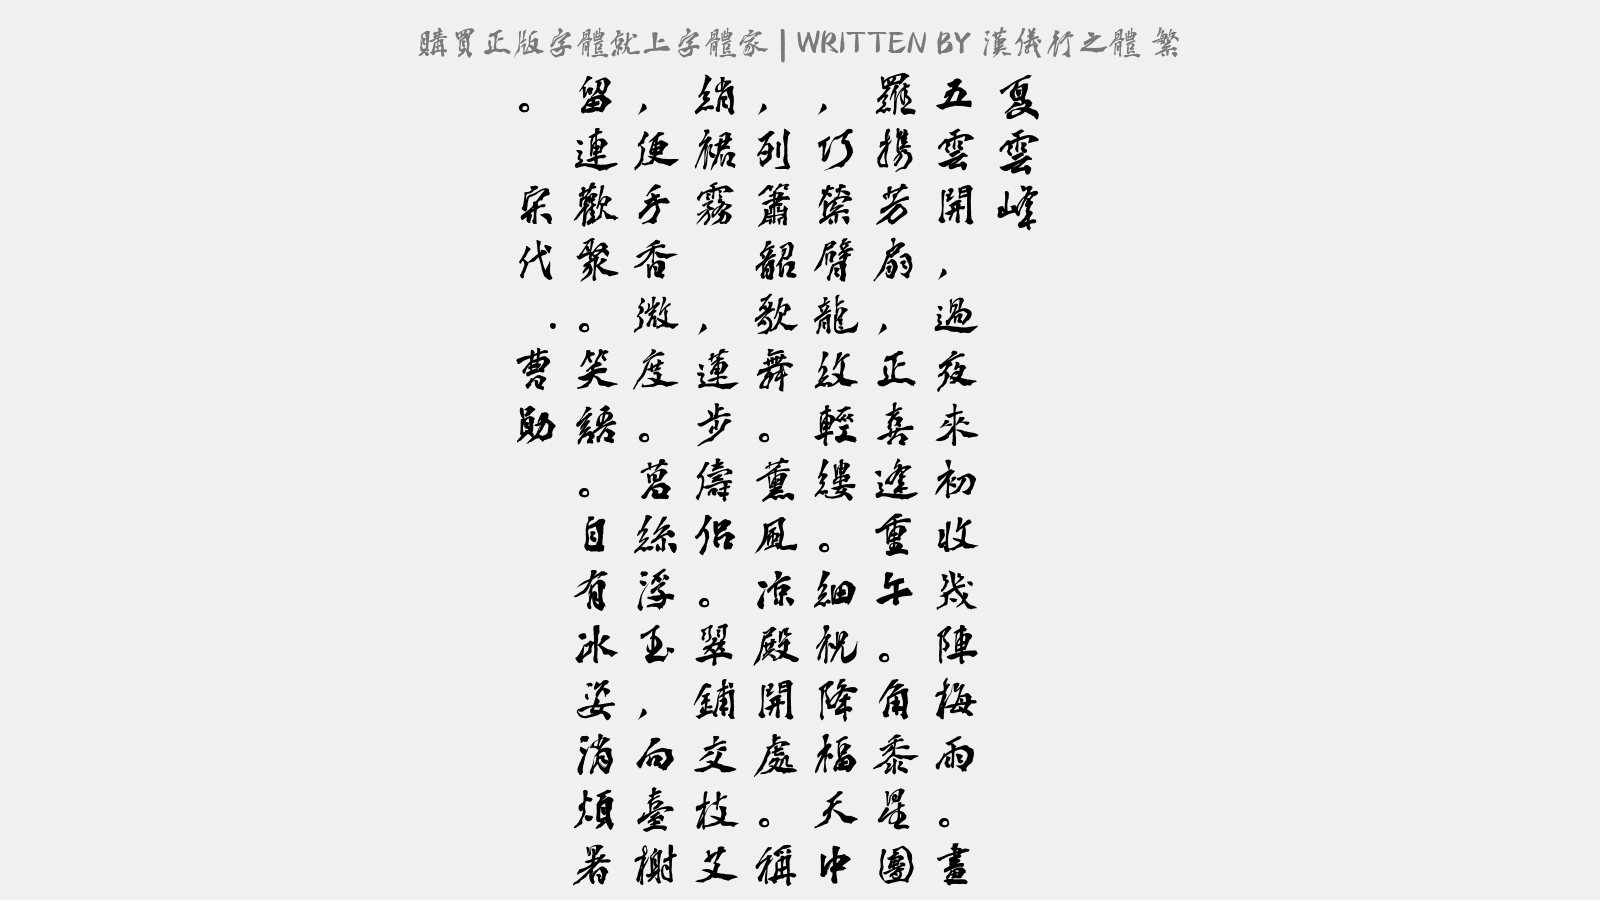 購買正版字體就上字體家 | WRITTEN BY 漢儀行之體 繁
夏雲峰
五雲開,過夜來初收幾陣梅雨。畫
羅携芳扇,正喜逢重午。角黍星團
,巧縈臂龍紋輕縷。細祝降福天中
,列簫韶歌舞。薰風凉殿開處。稱
綃裙霧,蓮步儔侶。翠鋪交枝艾
,便手香微度。菖絲浮玉,向臺榭
留連歡聚。笑語。自有冰姿消煩暑
。 宋代 . 曹勛